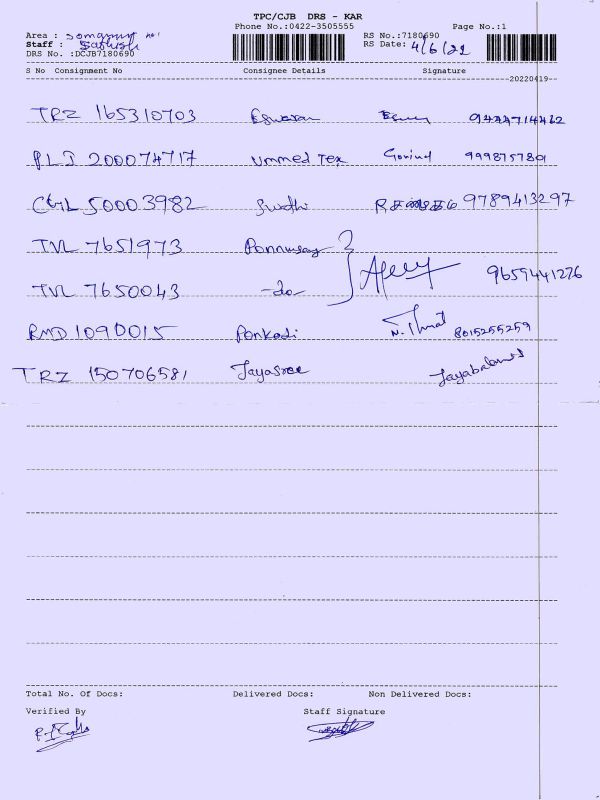 TPC/CJB DRS - KAR
Phone No.:0422-3505555 Page No.:1
Area :
RS No.:7180690
Staff : Sathish
RS Date: 4/6/22
DRS No. :DCJB7180690
S No Consignment No Consignee Details Signature
20220419
TRZ 165310703 Eswaran
PLI 200074717 Ummed Tex Govind 9998757801
50003982 9789413297
TVL 7651973
TVL 7650043 -do- 9659441276
RMD 1090015 Ponkodi 8015255259
TRZ 150706581 Jayasree
Total No. Of Docs: Delivered Docs: Non Delivered Docs:
Verified By Staff Signature